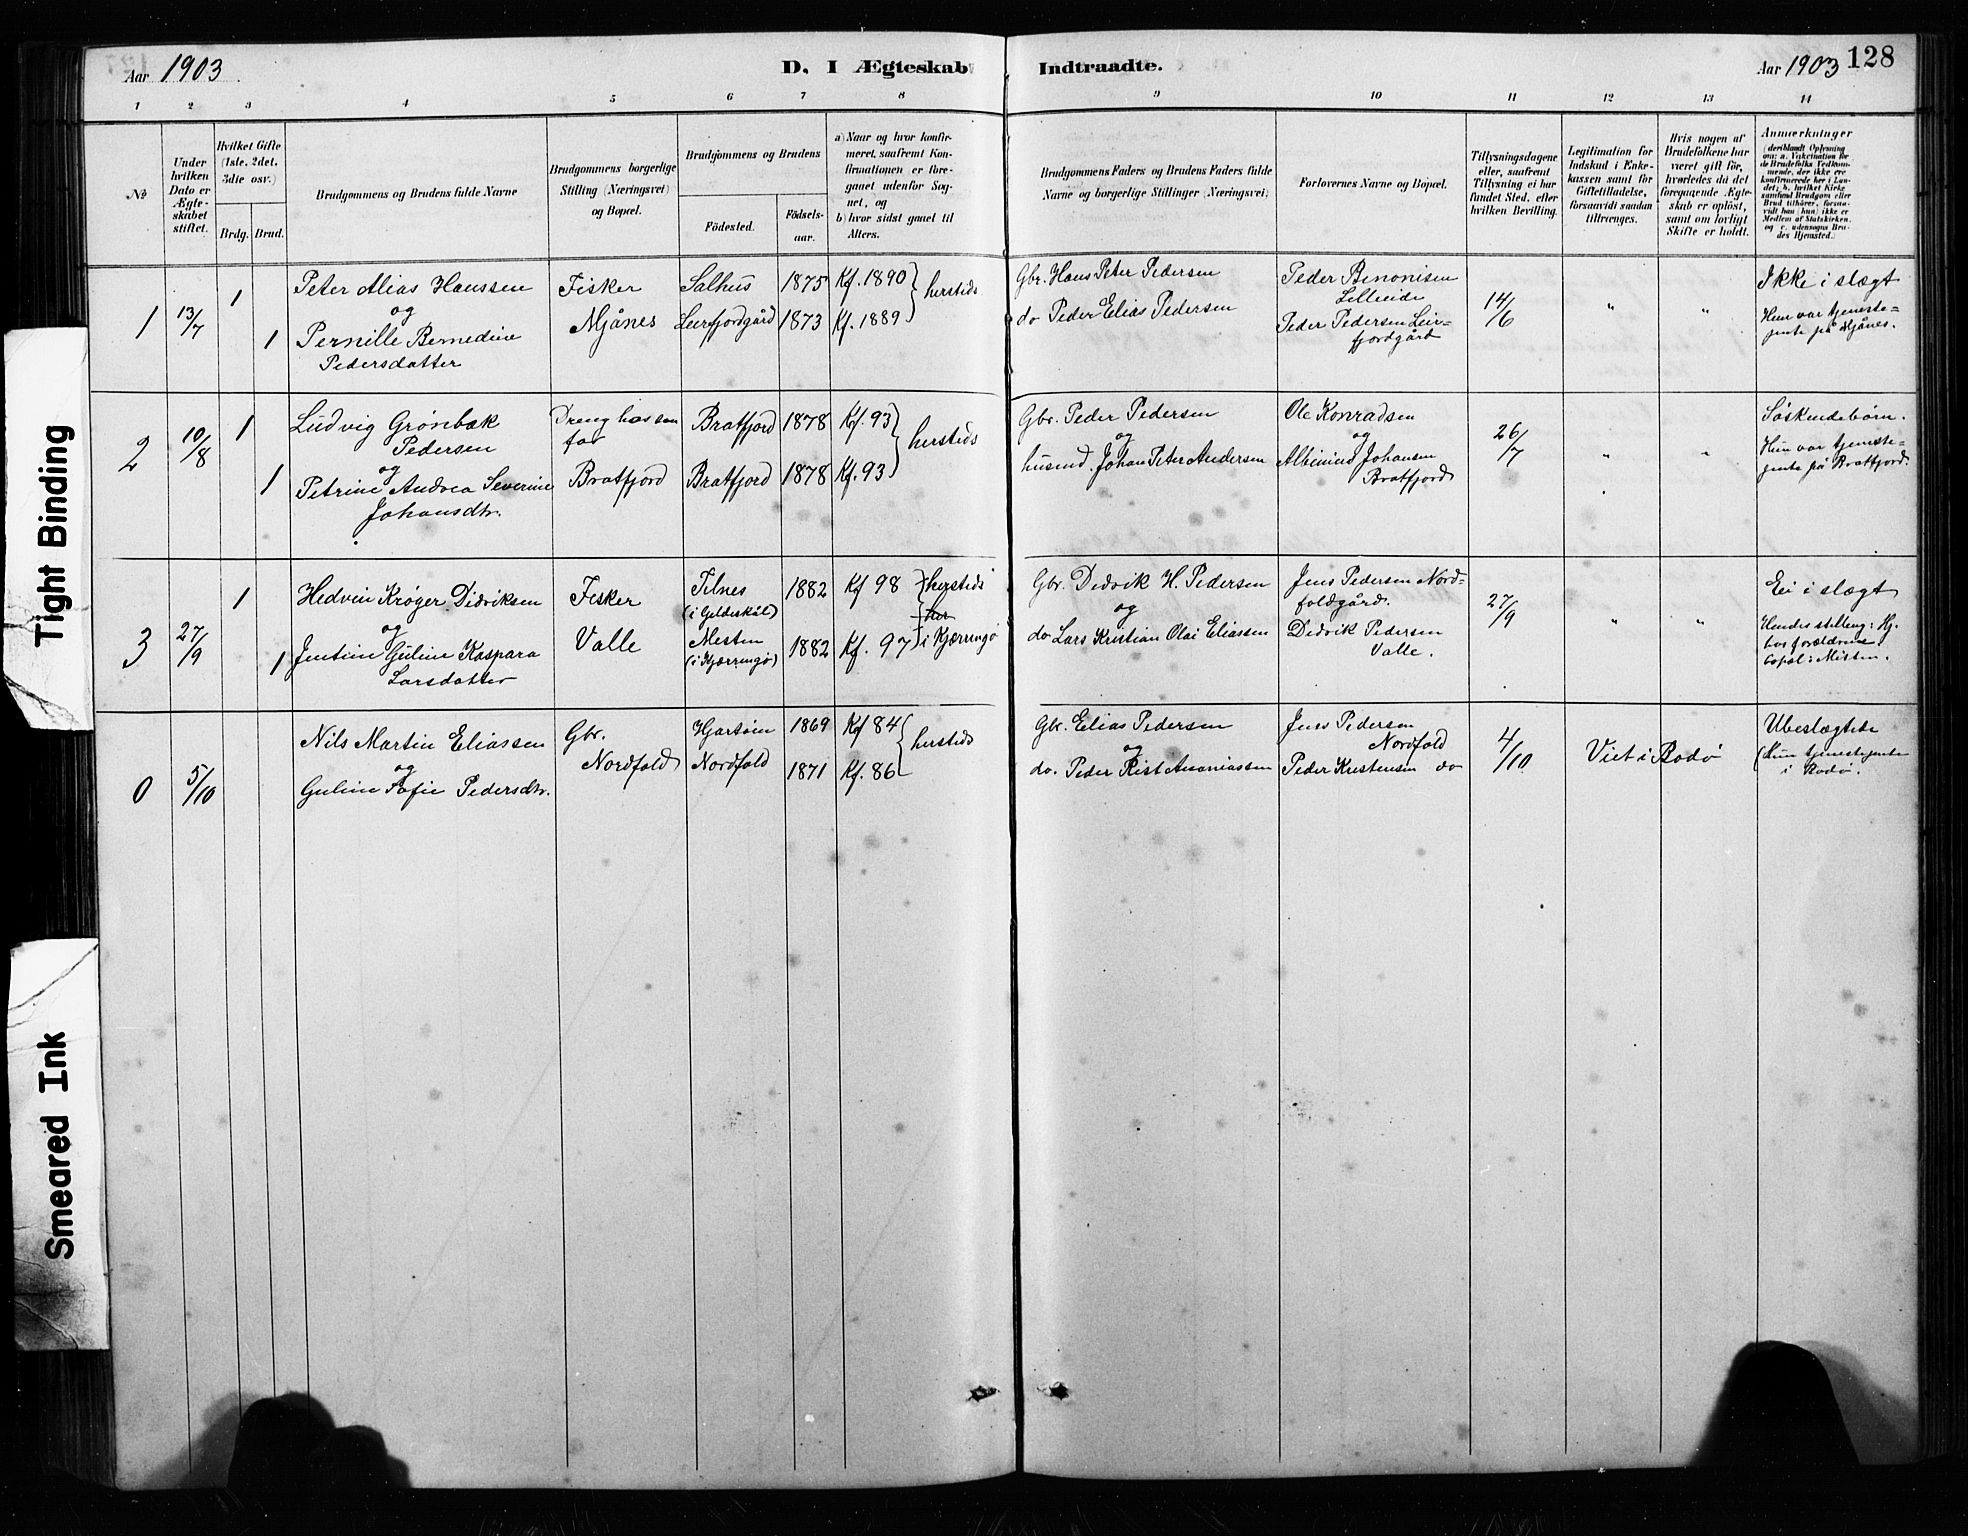 Aar 1903
D. I Ægteskab Indtraadte.
Aar 1903 128
1 2 3 4 5 6 7 8 9 10 11 12 13 14
No
Under hvilken Dato er Ægteskabet stiftet.
Hvilket Gifte (1ste, 2det, 3die osv.)
Brdg. Brud.
Brudgommens og Brudens fulde Navne
Brudgommens borgerlige Stilling (Næringsvei) og Bopæl.
Brudgommens og Brudens
Födested.
Födselsaar.
a) Naar og hvor konfirmeret, saafremt Konfirmationen er foregaaet udenfor Sognet, og
b) hvor sidst gaaet til Alters.
Brudgommens Faders og Brudens Faders fulde Navne og borgerlige Stillinger (Næringsvei)
Forlovernes Navne og Bopæl.
Tillysningsdagene eller, saafremt Tillysning ei har fundet Sted, efter hvilken Bevilling.
Legitimation for Indskud i Enkekassen samt for Giftetilladelse, forsaavidt saadan tiltrænges.
Hvis nogen af Brudefolkene har været gift för, hvorledes da det foregaaende Ægteskab er oplöst, samt om lovligt Skifte er holdt.
Anmerkninger
(deriblandt Oplysning om: a. Vakcination for de Brudefolks Vedkommende, der ikke ere konfirmerede her i Landet; b. hvilket Kirkesamfund Brudgom eller Brud tilhører, forsaavidt han (hun) ikke er Medlem af Statskirken, og c. udensogns Brudes Hjemsted.)
1 13/7 1 Peter Alias Hanssen Fisker Salhus 1875 Kf. 1890 herstids Gbr. Hans Peter Pedersen Peder Benonisen 14/6 " " Ikke i slægt
og Lilleeide
1 Pernille Bernedine Mjånes Leirfjordgård 1873 Kf. 1889 do Peder Elias Pedersen Peder Pedersen Leir= Hun var tjeneste=
Pedersdatter fjordgård jente på Mjånes.
2 10/8 1 Ludvig Grønbæk Dreng hos sin Bratfjord 1878 Kf. 93 herstids Gbr. Peder Pedersen Ole Konradsen 26/7 " " Søskendebørn.
Pedersen far og og Hun var tjeneste=
og husmd. Johan Peter Andersen Albinius Johansen jente på Bratfjord.
1 Petrine Andrea Severine Bratfjord Bratfjord 1878 Kf. 93 Bratfjord
Johansdtr.
3 27/9 1 Hedvin Krøger Didriksen Fisker 1882 Kf 98 herstids Gbr. Didvik H. Pedersen Jens Pedersen Nord= 27/9 " " Ei i slægt
og (i Gildeskål) og foldgård.
1 Jentine Guline Kaspara Valle Misten 1882 Kf. 97 i Kjærringø do Lars Kristian Olai Eliassen Didvik Pedersen Hendes stilling: Hj.
Larsdatter (i Kjærringø) Valle. hos forældrene
bopæl: Misten.
0 5/10 Nils Martin Eliassen Gbr. Hjartøen 1869 Kf 84 herstids Gbr. Elias Pedersen Jens Pedersen 4/10 Viet i Bodø Ubeslægtede
og Nordfold og Nordfold (Hun tjenestejente
Guline Sofie Pedersdtr. Nordfold 1871 Kf. 86 do. Peder Rist Ananiassen Peder Kristensen do i Bodø.
Tight Binding
Smeared Ink